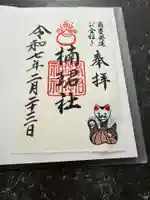 商売発達
お金招き
奉拝
楠珺社
令和七年二月二十三日